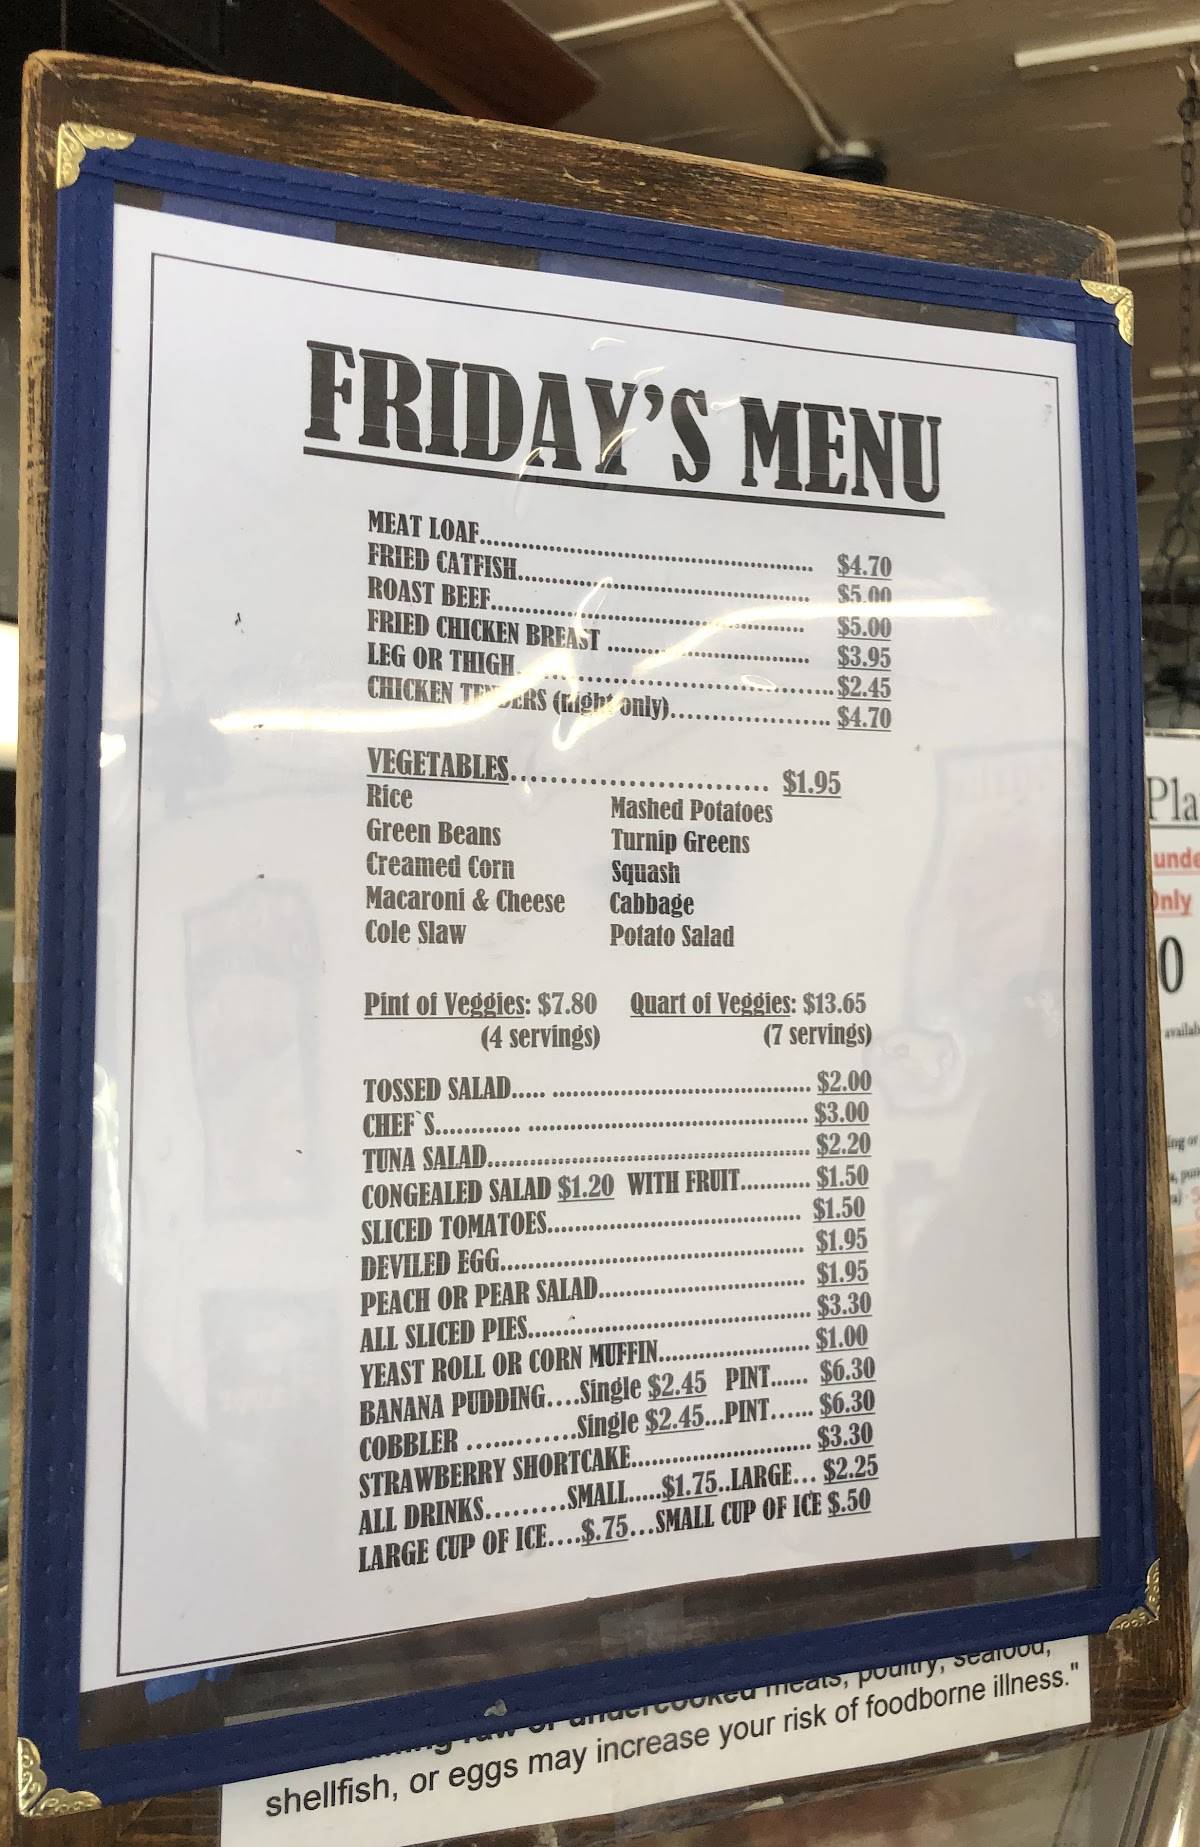 FRIDAY'S MENU
MEAT LOAF........................................ $4.70
FRIED CATFISH.................................... $5.00
ROAST BEEF....................................... $5.00
FRIED CHICKEN BREAST ............................ $3.95
LEG OR THIGH.....................................$2.45
CHICKEN TENDERS (night only)..................... $4.70
VEGETABLES............................ $1.95
Rice Mashed Potatoes
Green Beans Turnip Greens
Creamed Corn Squash
Macaroni & Cheese Cabbage
Cole Slaw Potato Salad
Pint of Veggies: $7.80 Quart of Veggies: $13.65
(4 servings) (7 servings)
TOSSED SALAD..... .................................... $2.00
CHEF`S............ ....................................... $3.00
TUNA SALAD............................................. $2.20
CONGEALED SALAD $1.20 WITH FRUIT........... $1.50
SLICED TOMATOES.................................... $1.50
DEVILED EGG........................................... $1.95
PEACH OR PEAR SALAD............................. $1.95
ALL SLICED PIES........................................ $3.30
YEAST ROLL OR CORN MUFFIN...................... $1.00
BANANA PUDDING....Single $2.45 PINT...... $6.30
COBBLER .............Single $2.45...PINT...... $6.30
STRAWBERRY SHORTCAKE.......................... $3.30
ALL DRINKS.........SMALL.....$1.75..LARGE... $2.25
LARGE CUP OF ICE....$.75...SMALL CUP OF ICE $.50
undercooked meats, poultry, seafood,
shellfish, or eggs may increase your risk of foodborne illness."
0